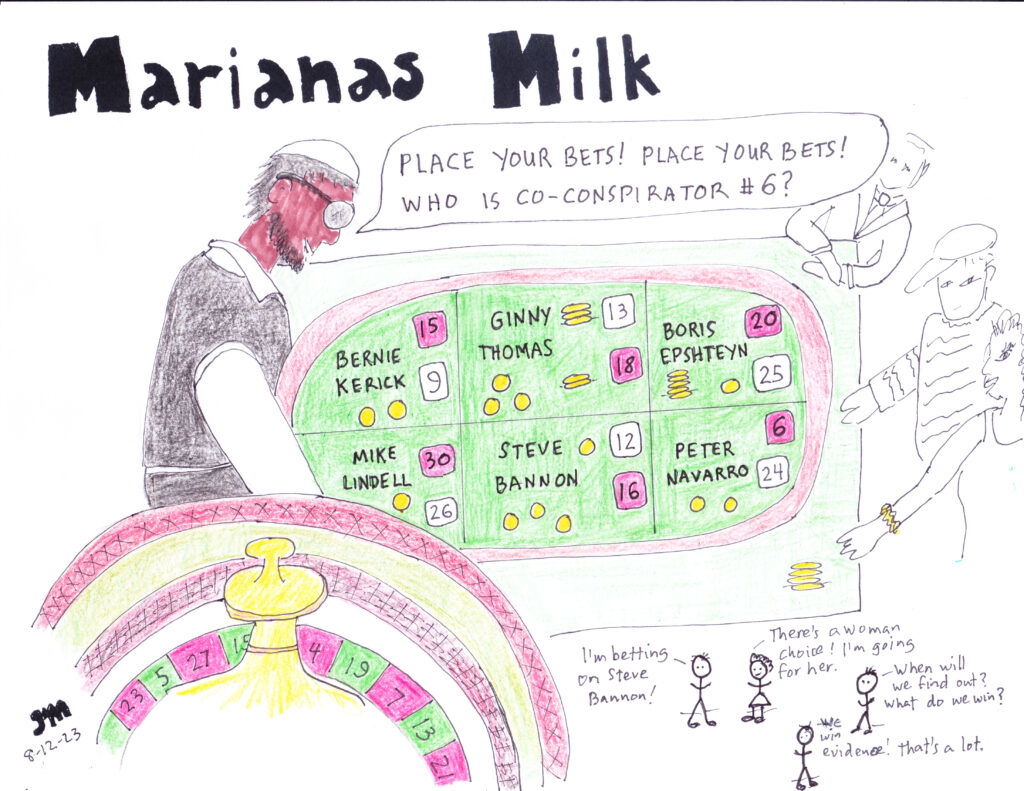 Marianas Milk
PLACE YOUR BETS! PLACE YOUR BETS!
WHO IS CO-CONSPIRATOR #6?
BERNIE
KERICK
15
9
GINNY
THOMAS
13
18
BORIS
EPSHTEYN
20
25
MIKE
LINDELL
30
26
STEVE
BANNON
12
16
PETER
NAVARRO
6
24
23
5
27
15
4
19
7
13
21
I'm betting
on Steve
Bannon!
There's a woman
choice! I'm going
for her.
When will
we find out?
What do we win?
We
win
evidence! That's a lot.
8-12-23